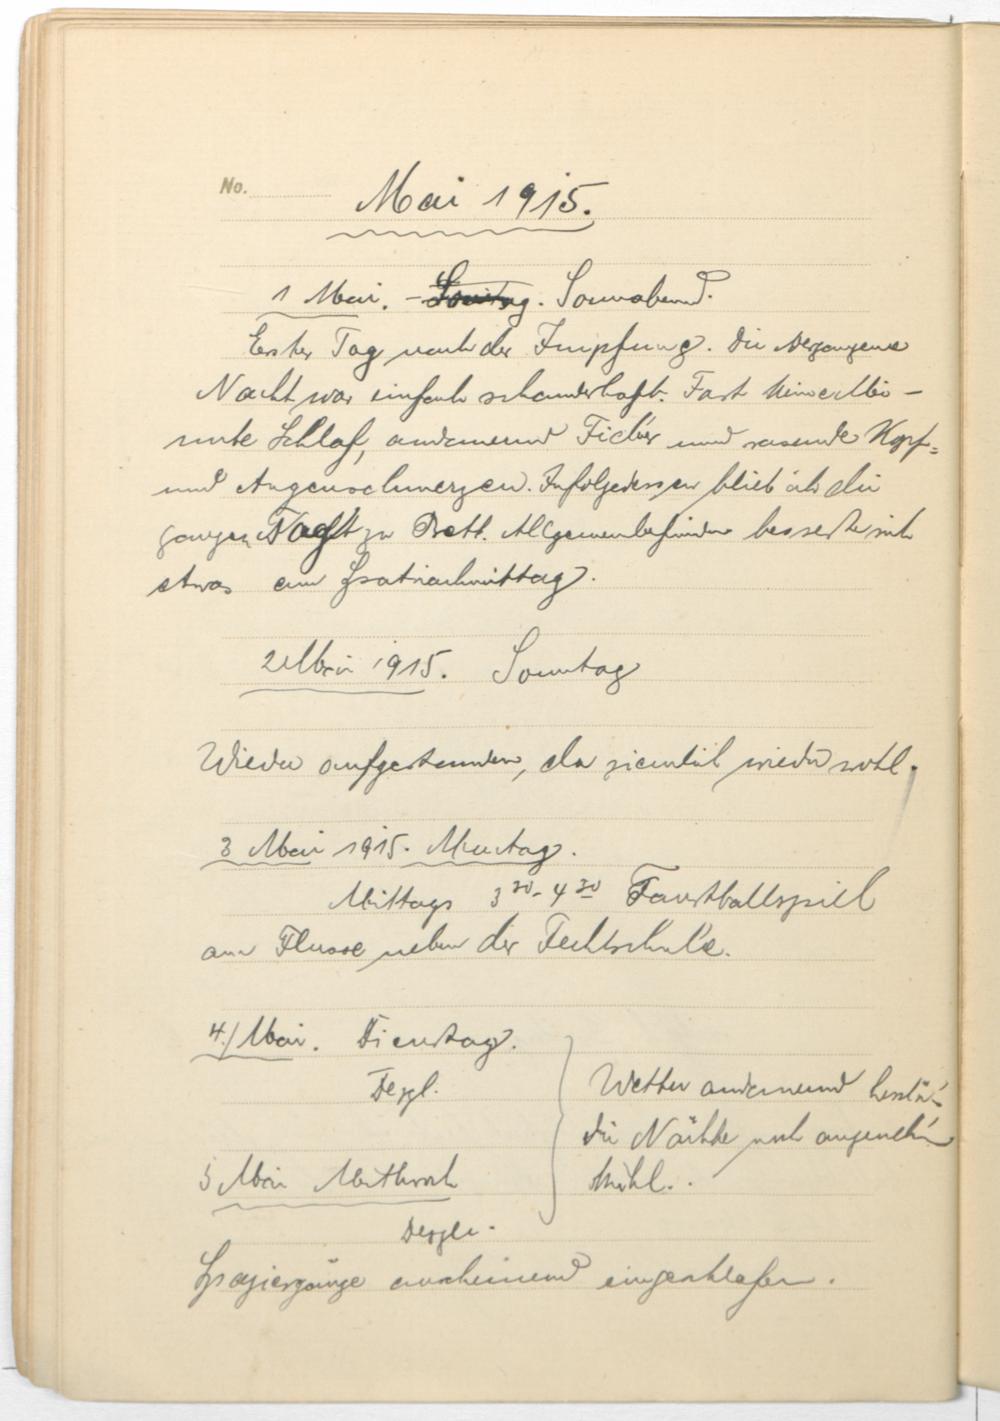 No.
Mai 1915.
1 Mai. - Sonntag. Sonnabend.
Erster Tag nach der Impfung. Die vergangene
Nacht war einfach schauderhaft. Fast keine Mi-
nute Schlaf, andauernd Fieber und rasende Kopf=
und Augenschmerzen. Infolgedessen blieb ich den
ganzen Tag zu Bett. Allgemeinbefinden besserte sich
etwas am Spätnachmittag.
2 Mai 1915. Sonntag
Wieder aufgestanden, da ziemlich wieder wohl.
3 Mai 1915. Montag.
Mittags 3 30 - 4 30 Faustballspiel
am Flusse neben der Fechtschule.
4./Mai. Dienstag.
Desgl.
Wetter andauernd
die Nächte noch angenehm
kühl..
5 Mai Mittwoch
Desgl.
Spaziergänge anscheinend eingeschlafen.